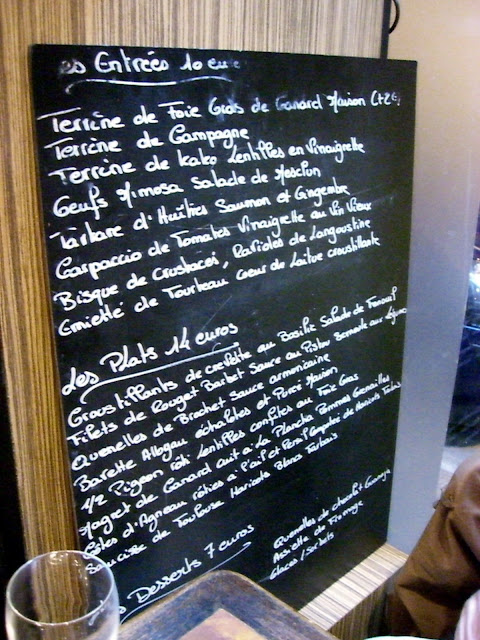 es Entrées 10 eur
Terrine de Foie Gras de Canard Maison (+2€)
Terrine de Campagne
Terrine de kako lentilles en Vinaigrette
Oeufs Mimosa Salade de Mesclun
Tartare d'Huîtres Saumon et Gingembre
Carpaccio de Tomates Vinaigrette au Vin Vieux
Bisque de Crustacés, Ravioles de Langoustine
Emietté de Tourteau coeur de Laitue croustillante
Les Plats 14 euros
Croustillants de crevette au Basilic Salade de Fenouil
Filets de Rouget Barbet Sauce au Pistou Semoule aux légumes
Quenelles de Brochet Sauce armoricaine
Bavette Alloyau échalotes et Purée Maison
1/2 Pigeon rôti Lentilles confites au Foie Gras
Magret de Canard cuit à la Plancha Pommes Grenailles
Côtes d'Agneau rôties à l'ail et Persil Compotée de Haricots Tarbais
Saucisse de Toulouse Haricots Blancs Tarbais
s Desserts 7 euros
Quenelles de chocolat Orange
Assiette de Fromage
Glaces / Sorbets